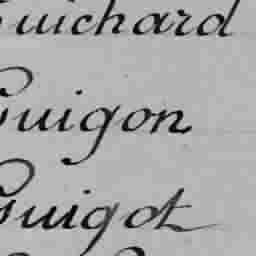 Guichard
Guigon
Guigot